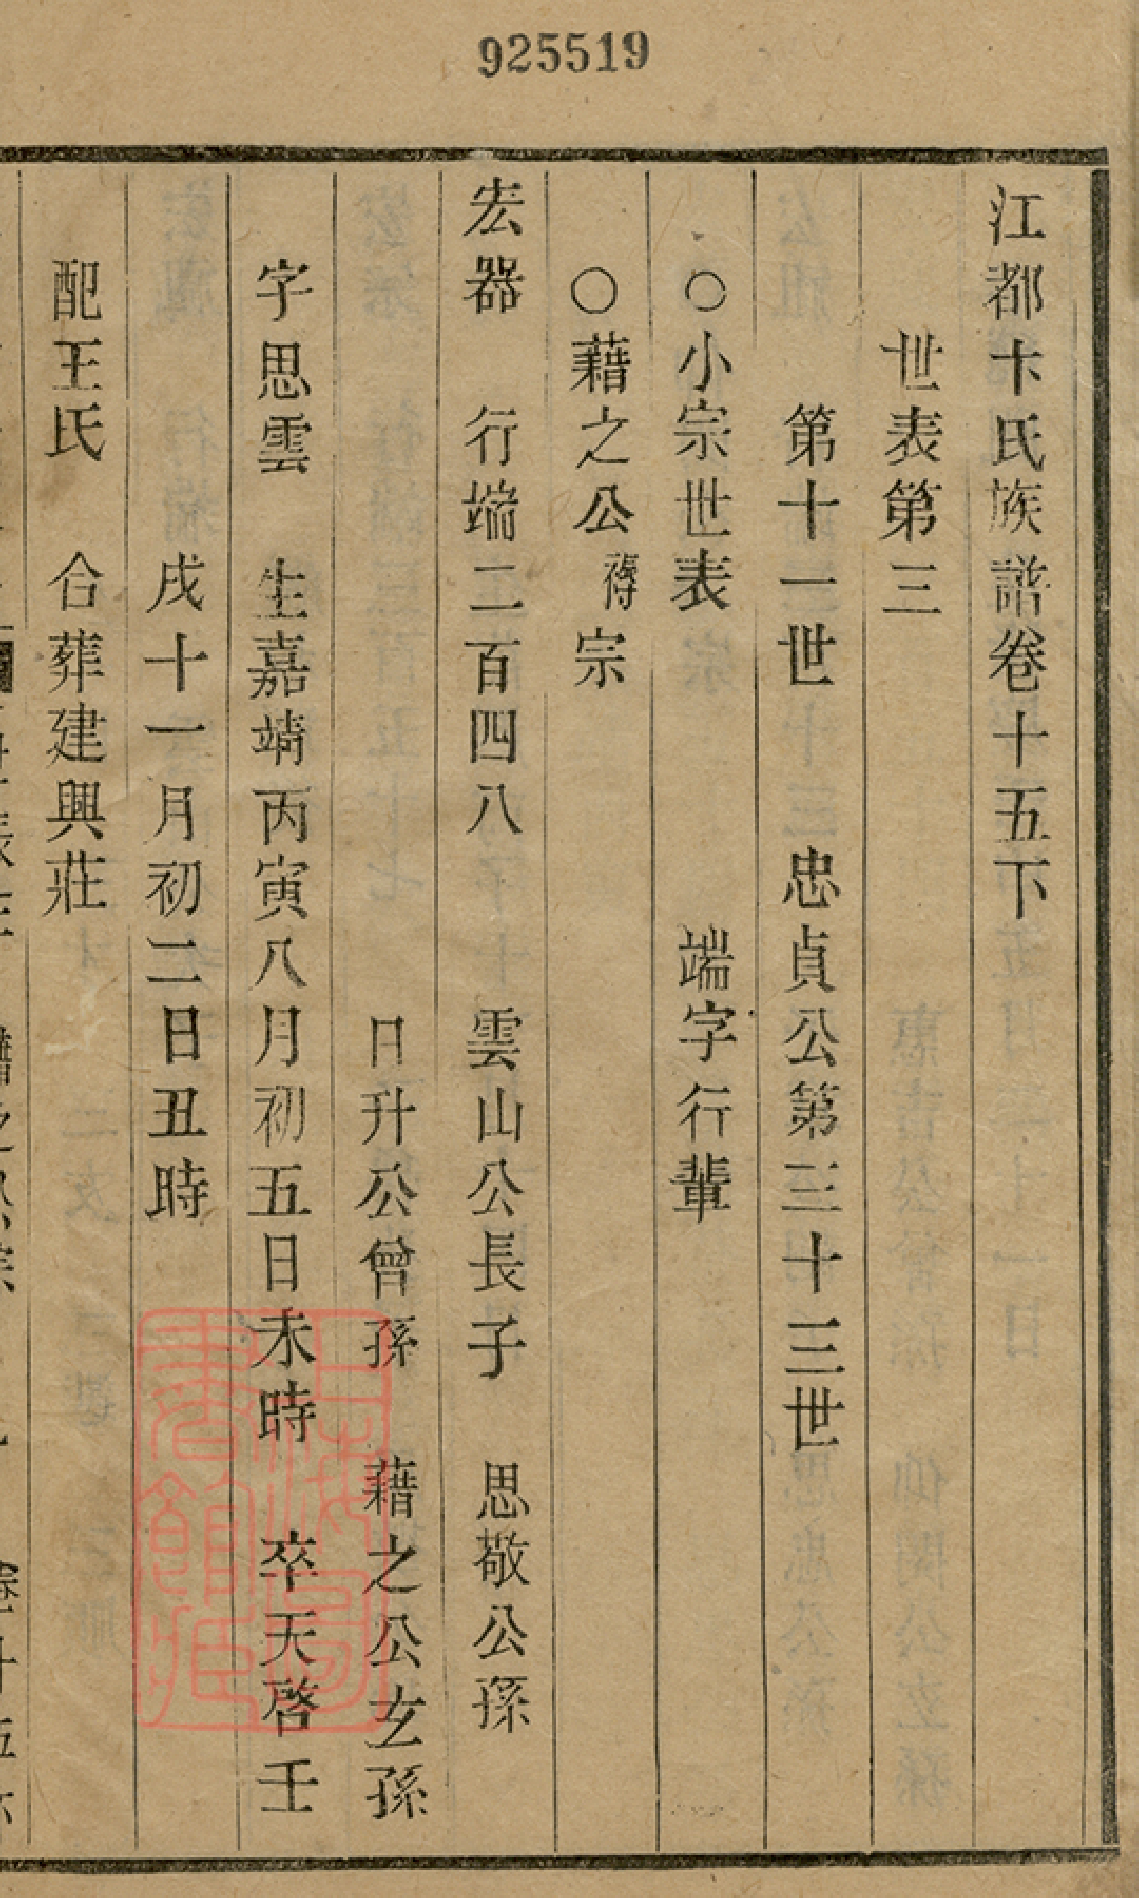 925519
江都卞氏族譜卷十五下
世表第三
第十一世 忠貞公第三十三世
○小宗世表 端字行輩
○藉之公禣宗
宏器 行端二百四八 雲山公長子 思敬公孫
日升公曾孫 藉之公玄孫
字思雲 生嘉靖丙寅八月初五日未時 卒天啓壬
戌十一月初二日丑時
配王氏 合葬建興莊
上海圖書館藏